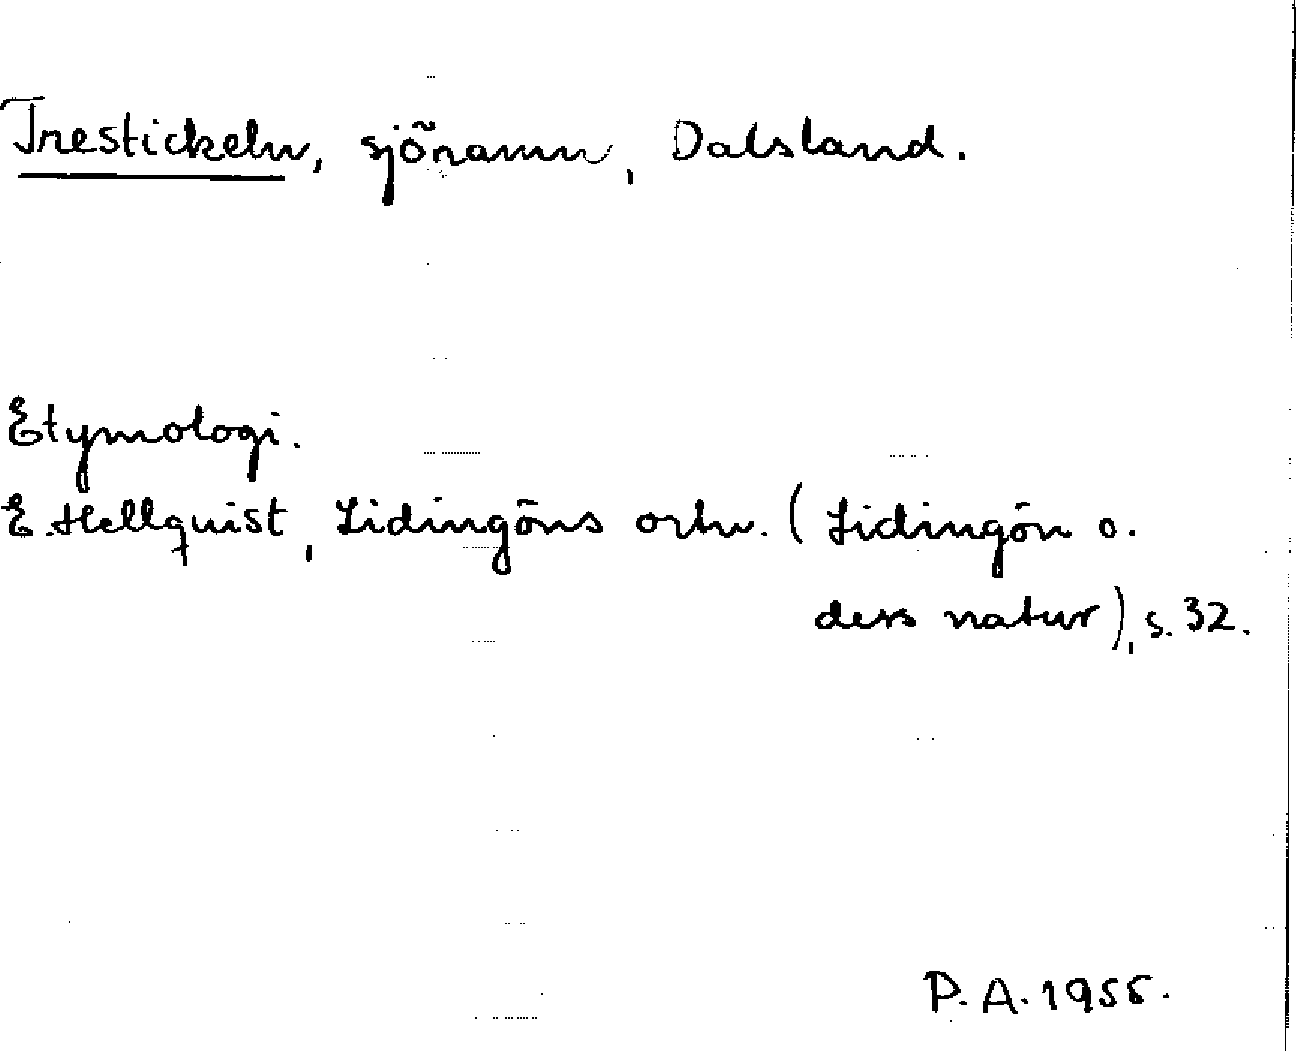 Trestickeln, sjönamn, Dalsland.
Etymologi.
E. Hellquist, Lidingöns ortn. (Lidingön o.
dess natur), s. 32.
P. A. 1955.